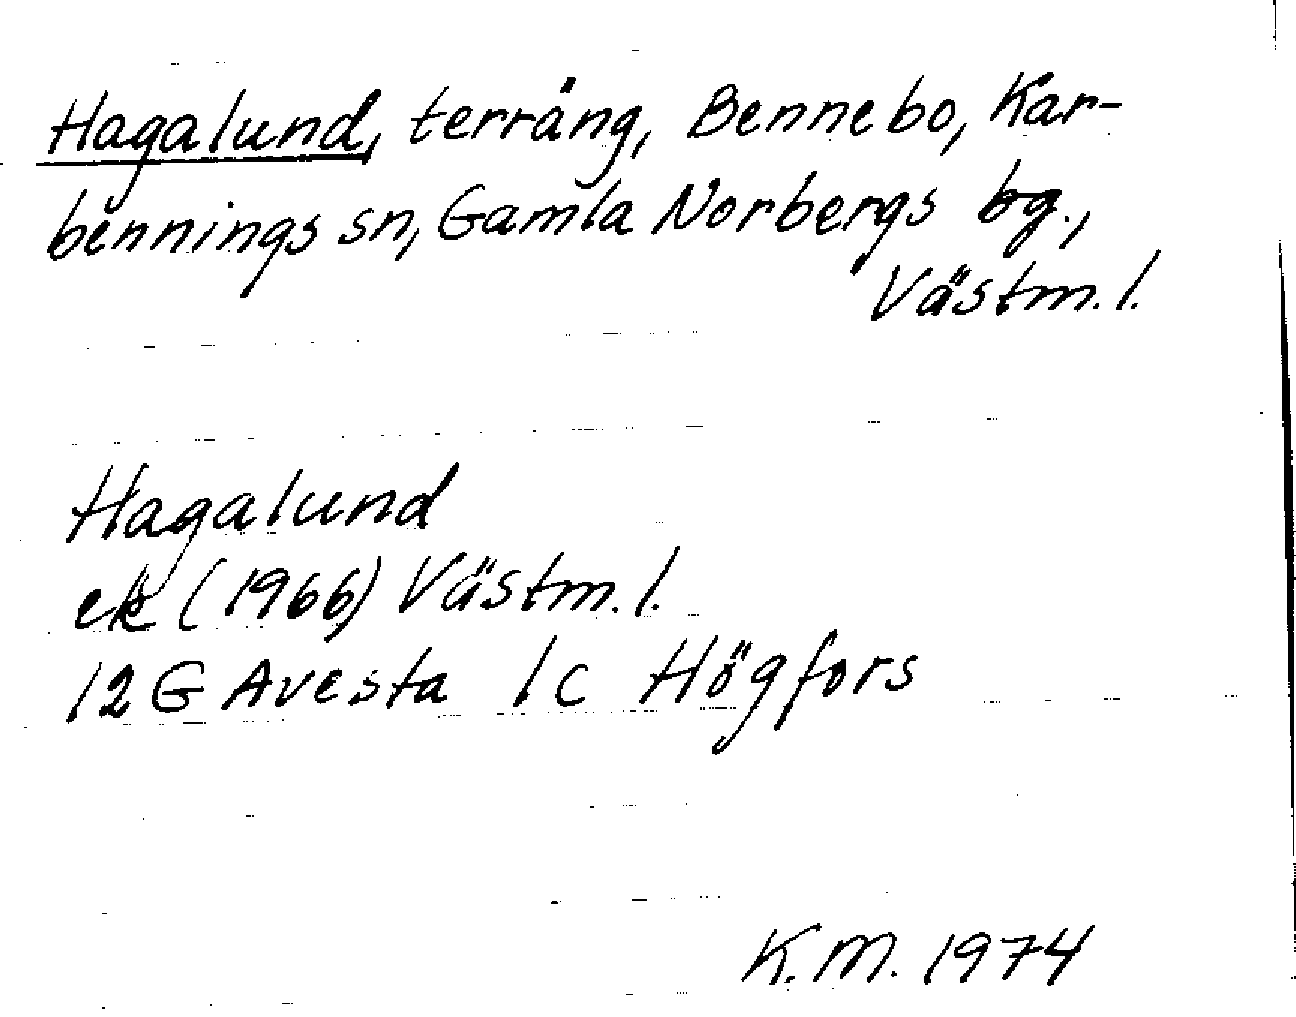 Hagalund, terräng, Bennebo, Kar-
bennings sn, Gamla Norbergs bg.,
Västm. l.
Hagalund
ek (1966) Västm. l.
12 G Avesta 1 c Högfors
K. M. 1974